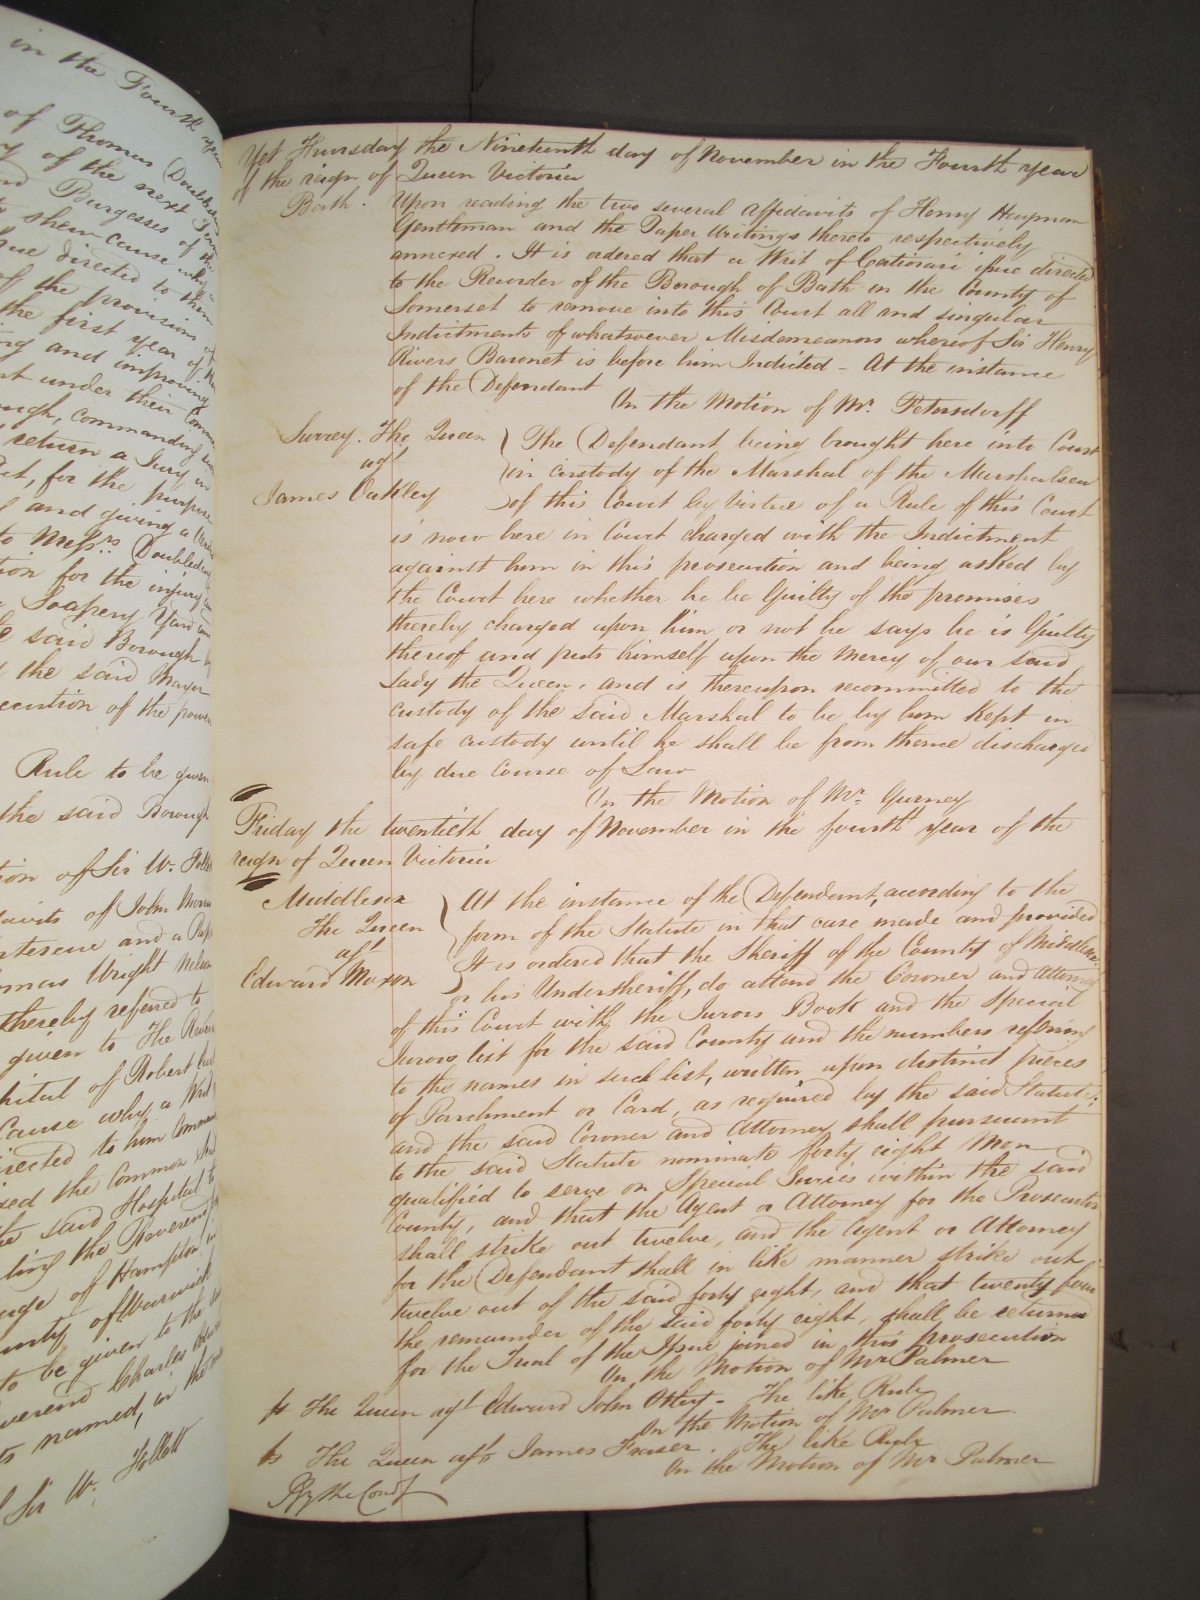 in the Fourth year
of Thomas Doubleday
of the next Term
and Burgesses of the
to shew cause why a
issue directed to them
of the provisions of
the first year of the
and improving
under their Common
commanding
return a Jury in
for the purpose
and giving a
to Messrs. Doubleday
tion for the injury
Soapery Yard and
said Borough
the said Mayor
execution of the powers
Rule to be given
the said Borough
of Sir W. Follett
davits of John
and a Paper
Wright Nelson
thereby referred to
given to The
of Robert
Cause why a Writ
directed to him Command
the Common Seal
the said Hospital to
the Reverend
of Hampton in
county of Warwick
to be given to the
Reverend Charles
named, in the
Sir W. Follett
Yet Thursday the Nineteenth day of November in the Fourth year
of the reign of Queen Victoria
Bath. Upon reading the two several Affidavits of Henry Hayman
Gentleman and the Paper Writings thereto respectively
annexed. It is ordered that a Writ of Certiorari issue directed
to the Recorder of the Borough of Bath in the County of
Somerset to remove into this Court all and singular
Indictments of whatsoever Misdemeanors whereof Sir Henry
Rivers Baronet is before him Indicted - At the instance
of the Defendant
On the Motion of Mr. Petersdorff
Surrey. The Queen } The Defendant being brought here into Court
agt in custody of the Marshal of the Marshalsea
James Oakley of this Court by Virtue of a Rule of this Court
is now here in Court charged with the Indictment
against him in this prosecution and being asked by
the Court here whether he be Guilty of the premises
thereby charged upon him or not he says he is Guilty
thereof and puts himself upon the Mercy of our said
Lady the Queen, and is thereupon recommitted to the
custody of the said Marshal to be by him kept in
safe custody until he shall be from thence discharged
by due Course of Law
On the Motion of Mr. Gurney
Friday the twentieth day of November in the fourth year of the
reign of Queen Victoria
Middlesex } At the instance of the Defendant, according to the
The Queen form of the Statute in that case made and provided
agt It is ordered that the Sheriff of the County of Middlesex
Edward Moxon or his Undersheriff, do attend the Coroner and Attorney
of this Court with the Jurors Book and the Special
Jurors list for the said County and the numbers refering
to the names in such list, written upon distinct pieces
of Parchment or Card, as required by the said Statute;
and the said Coroner and Attorney shall pursuant
to the said Statute nominate forty eight Men
qualified to serve on Special Juries within the said
County, and that the Agent or Attorney for the Prosecutor
shall strike out twelve, and the Agent or Attorney
for the Defendant shall in like manner strike out
twelve out of the said forty eight, and that twenty four
the remainder of the said forty eight, shall be returned
for the Trial of the Issue joined in this prosecution
On the Motion of Mr Palmer
ss The Queen agt Edward John Otley - The like Rule
On the Motion of Mr Palmer
ss The Queen agt James Fraser. The like Rule
On the Motion of Mr Palmer
By the Court